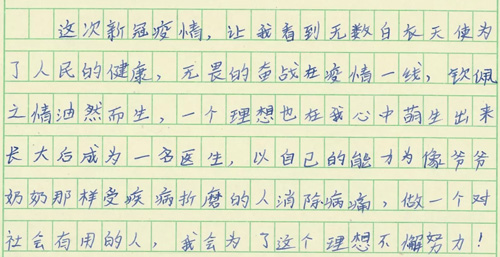 这次新冠疫情，让我看到无数白衣天使为
了人民的健康，无畏的奋战在疫情一线，钦佩
之情油然而生，一个理想也在我心中萌生出来
长大后成为一名医生，以自己的能力为像爷爷
奶奶那样受疾病折磨的人消除病痛，做一个对
社会有用的人，我会为了这个理想不懈努力！